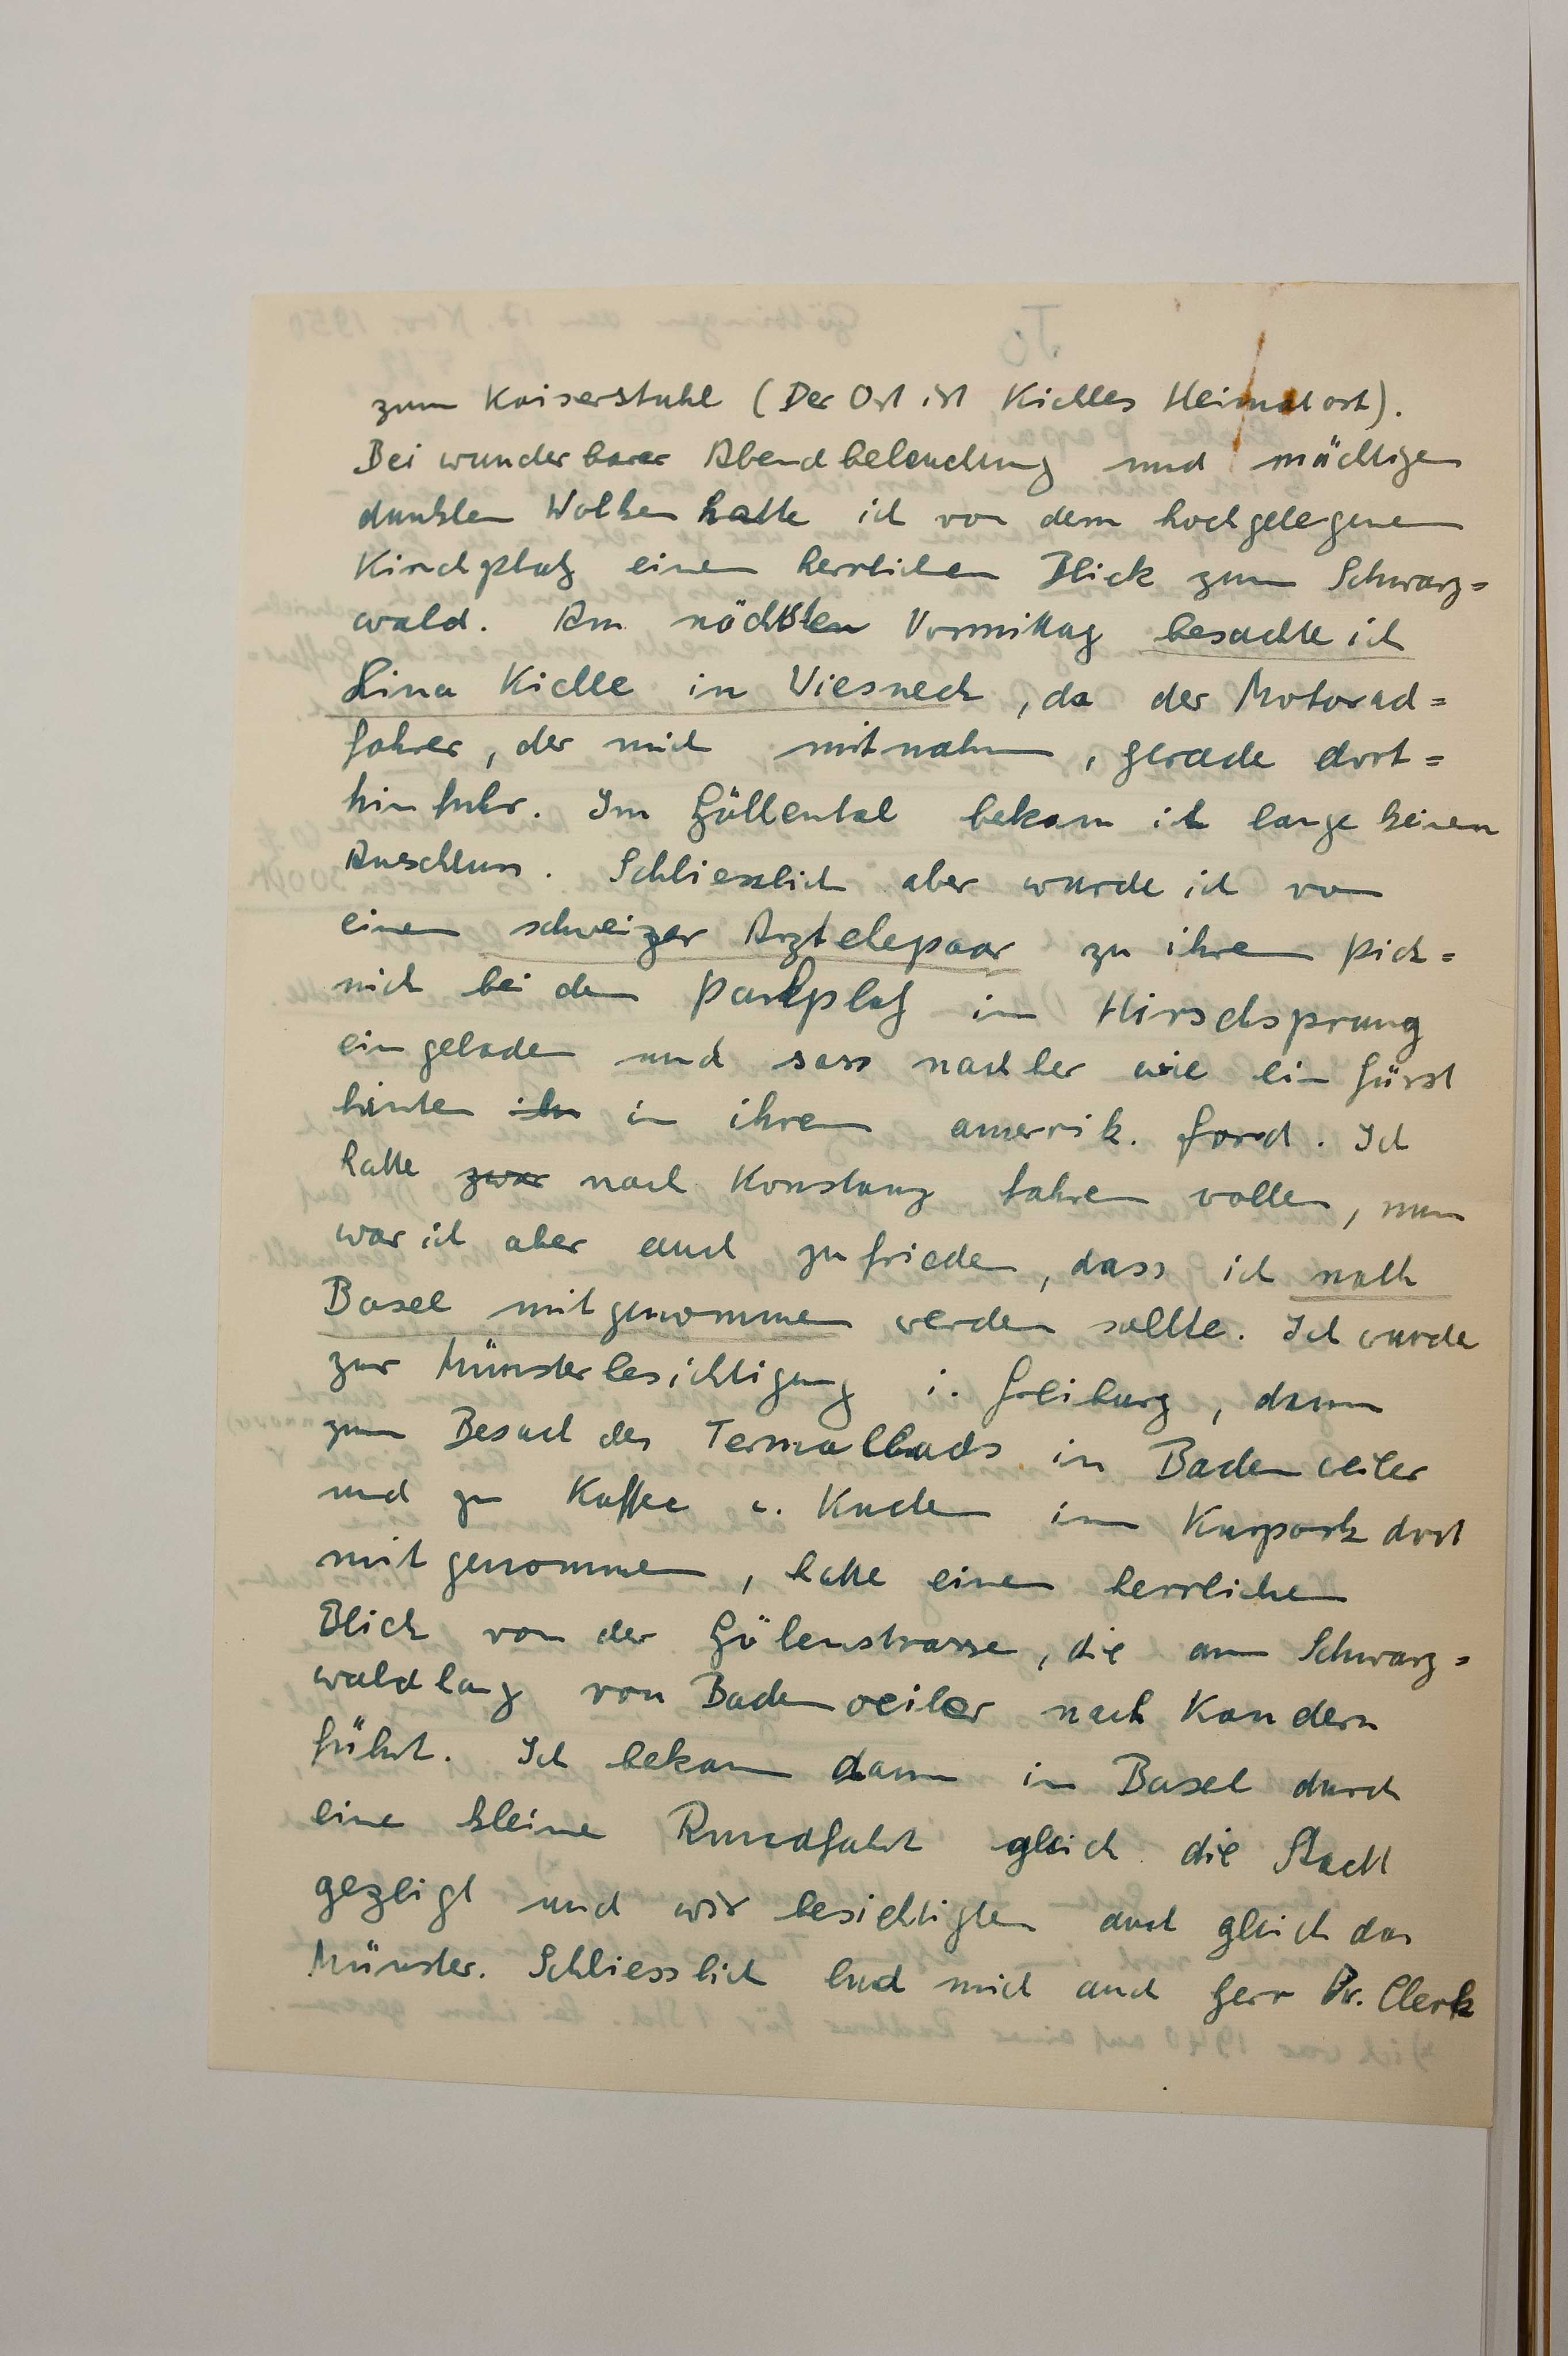 zum Kaiserstuhl (Der Ort ist Kichles Heimatort).
Bei wunderbarer Abendbeleuchtung und mächtigen
dunklen Wolken hatte ich von dem hochgelegenen
Kirchplatz einen herrlichen Blick zum Schwarz=
wald. Am nächsten Vormittag besuchte ich
Lina Kichle in Wiesneck, da der Motorrad=
fahrer, der mich mitnahm, gerade dort=
hin fuhr. Im Höllental bekam ich lange keinen
Anschluss. Schliesslich aber wurde ich von
einem schweizer Arztehepaar zu ihrem Pick=
nick bei dem Parkplatz im Hirschsprung
eingeladen und sass nachher wie ein Fürst
hinten in ihrem amerik. Ford. Ich
hatte zwar nach Konstanz fahren wollen, nun
war ich aber auch zufrieden, dass ich nach
Basel mitgenommen werden sollte. Ich wurde
zur Münsterbesichtigung i. Freiburg, dann
zum Besuch des Termalbads in Badenweiler
und zu Kaffee u. Kuchen im Kurpark dort
mitgenommen, hatte einen herrlichen
Blick von der Höhenstrasse, die am Schwarz=
wald lang von Badenweiler nach Kandern
führt. Ich bekam dann in Basel durch
eine kleine Rundfahrt gleich die Stadt
gezeigt und wir besichtigten auch gleich das
Münster. Schliesslich lud mich auch Herr Dr. Clerk